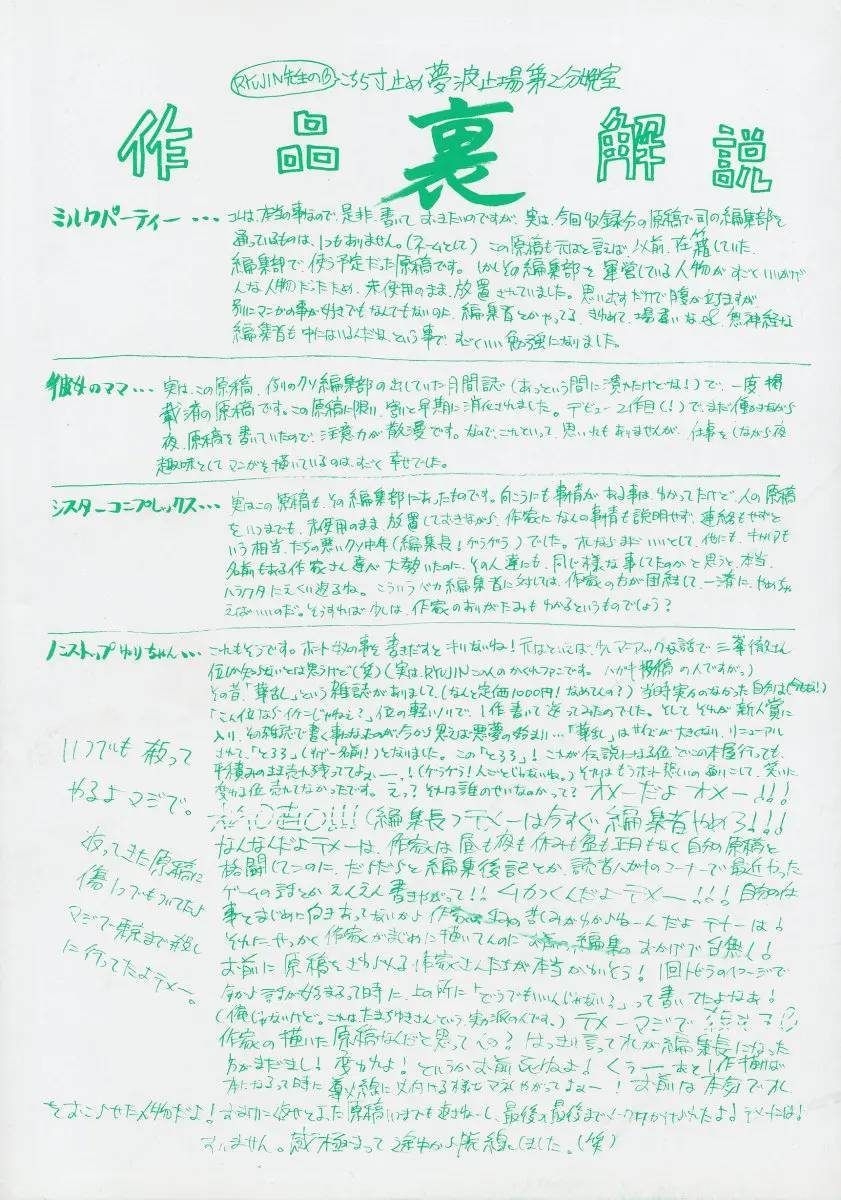 RYUJIN先生の こちら寸止め夢波止場第2分娩室
作品裏解説
ミルクパーティー・・・ コレは、本当の事なので、是非、書いておきたいのですが、実は、今回収録分の原稿で司の編集部を
通っているものは、1つもありません。(ネームとして) この原稿も元はと言えば、以前、在籍していた
編集部で、使う予定だった原稿です。しかしその編集部を運営している人物がすごくいいかげ
んな人物だったため、未使用のまま、放置されていました。思い出すだけで腹が立ちますが
別にマンガの事が好きでもなんでもないのに、編集者とかやってる、きわめて、場違いな 無神経な
編集者も中にはいるんだね、という事で、すごくいい勉強になりました。
彼女のママ・・・ 実は、この原稿、例のクソ編集部の出していた月間誌(あっという間に潰れたけどな!)で、一度掲
載済の原稿です。この原稿に限り、割と早期に消化されました。デビュー2作目(!)で、まだ働きながら
夜、原稿を書いていたので、注意力が散漫です。なので、これといって、思い入れもありませんが、仕事をしながら夜
趣味としてマンガを描いているのは、すごく幸せでした。
シスターコンプレックス・・・ 実はこの原稿も、その編集部にあったものです。向こうにも事情がある事は、わかってたけど、人の原稿
をいつまでも、未使用のまま、放置しておきながら、作家になんの事情も説明せず、連絡もせずと
いう相当、たちの悪いクソ中年(編集長!ゲラゲラ)でした。オレならまだいいとして、他にも、キャリアも
名前もある作家さん達が大勢いたのに、その人達にも、同じ様な事してたのかと思うと、本当、
ハラワタにえくい返るね。こういうバカ編集者に対しては、作家の方が団結して、一斉に、やめちゃ
えばいいのだ。そうすれば少しは、作家のありがたみもわかるというものでしょう?
ノンストップゆりちゃん・・・ これもそうです。ホント の事を書きだすとキリないね!元はといえば、少しマニアックな話で三峯徹さん
位しか知らないとは思うけど(笑)(実は、RYUJINこの人のかくれファンです。ハガキ投稿の人ですが。)
その昔「華乱」という雑誌がありまして、(なんと定価1000円!なめてんの?) 当時実力のなかった自分は(今もな!)
「こん位ならイケんじゃねえ?」位の軽いノリで、1作書いて送ってみたのでした。そしてそれが新人賞に
入り、その雑誌で書く事になったのが、今から思えば悪夢の始まり・・・「華乱」はサイズが大きくなり、リニューアル
されて、「とろろ」(すげー名前!)となりました。この「とろろ」!これが伝説になる位、どこの本屋行っても、
平積みのまま売れ残っててよぉー、!(ゲラゲラ!人ごとじゃないね。)それはもうホント悲しいの通りこして、笑いに
変わる位売れてなかったです。えっ?それは誰のせいなのかって? オメーだよオメー!!!
(編集長)テメーは今すぐ編集者やめろ!!!
なんなんだよテメーは、作家は昼も夜も休みも盆も正月もなく自分の原稿と
格闘してんのに、だらだらと編集後記とか、読者ハガキのコーナーで最近やった
ゲームの話とかえんえん書きやがって!!ムカつくんだよテメー!!!自分の仕
事とまじめに向きあってないから作家 の苦しみがわからねーんだよテメーは!
それに、せっかく作家がまじめに描いてんのに 編集のおかげで台無し!
お前に原稿をさわられる作家さんたちが本当かわいそう!1回トビラのイメージで
今から話が始まるって時に、上の所に「どうでもいいんじゃない?」って書いてたよなあ!
(俺じゃないけど。これは、たまちゆきさんという、実力派の人です。)テメーマジで
作家の描いた原稿なんだと思ってんの?はっきり言ってオレが編集長になった
方がまだまし!変われよ!というかお前死ねよ!くぅーあと1作描けば
本になるって時に 様なマネしやがってよぉー!お前は本気でオレ
をおこらせた人物だよ! 原稿いつまでも返さねーし、最後の最後まで たよ!テメーには!
すいません。感極まって途中から脱線しました。(笑)
いつでも殺って
やるよマジで。
返ってきた原稿に
傷1つでもついてたら
マジで東京まで殺し
に行ってたよテメー。